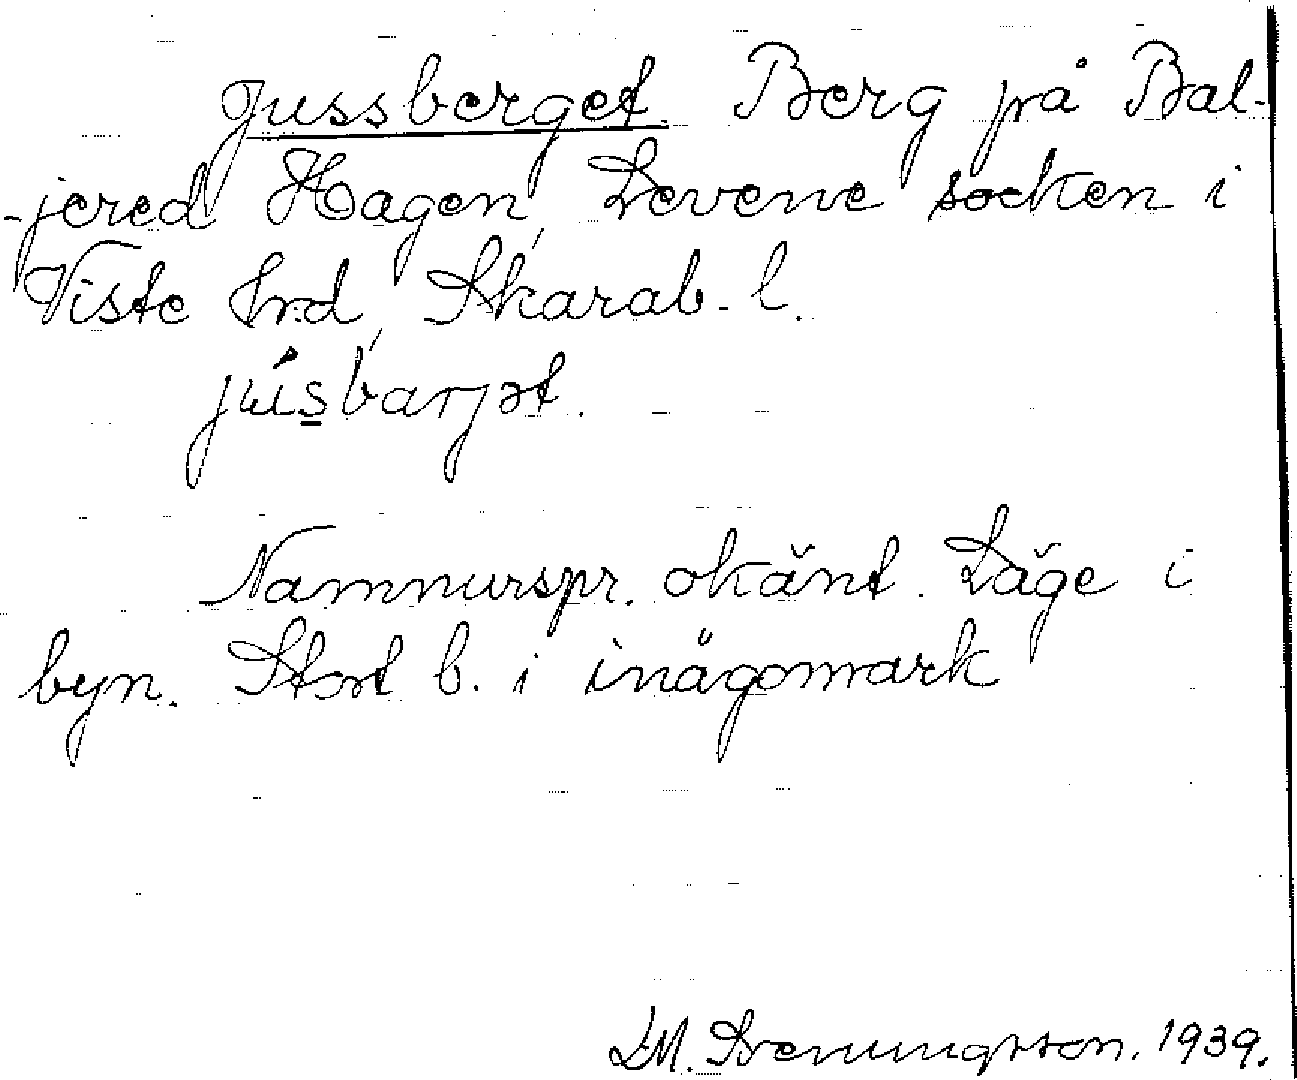 Jussberget. Berg på Bal-
-jered Hagen, Levene socken i
Viste hrd, Skarab. l.
jùsbarjət.
Namnurspr. okänt. Läge i
byn. Stort b. i inägomark
D.M. Svenungsson. 1939.